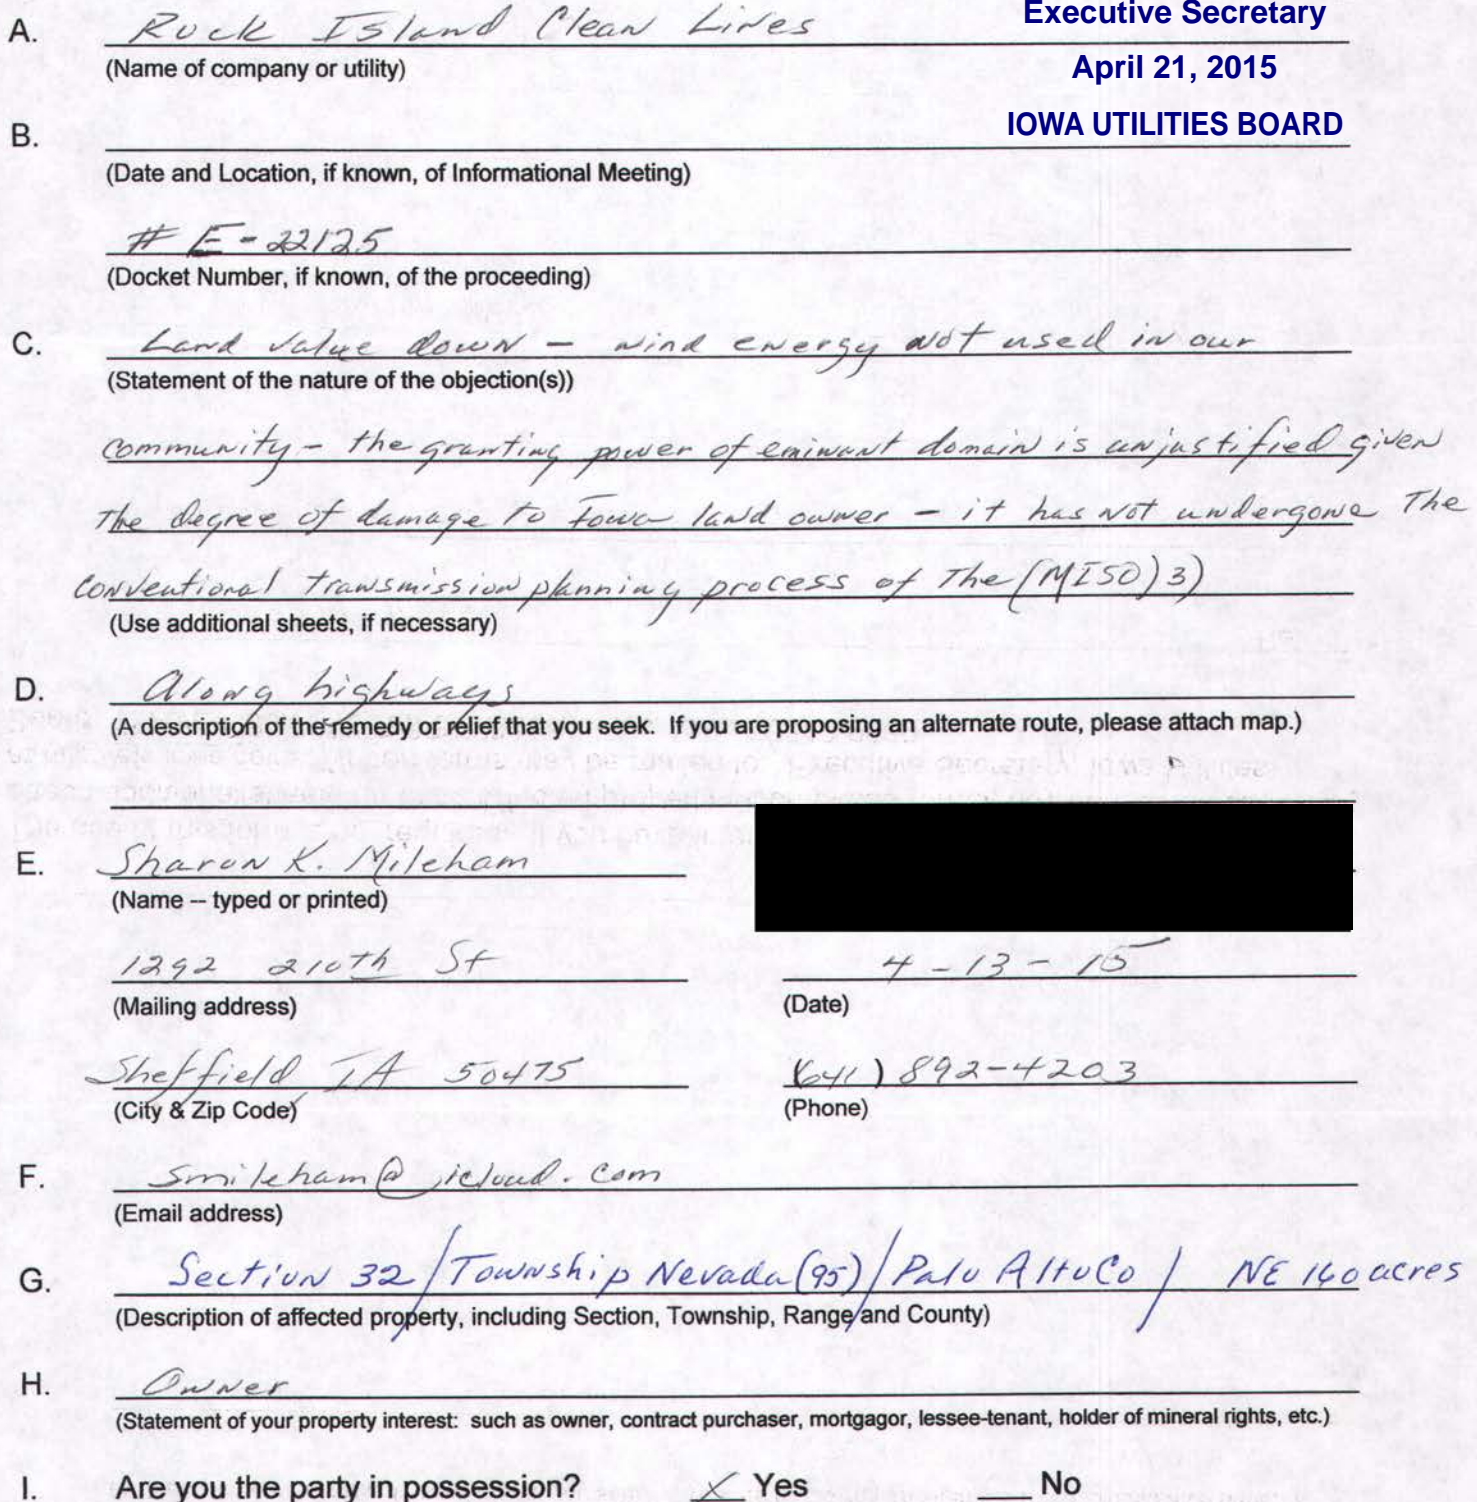 Executive Secretary
April 21, 2015
IOWA UTILITIES BOARD
A. Rock Island Clean Lines
(Name of company or utility)
B.
(Date and Location, if known, of Informational Meeting)
# E-22125
(Docket Number, if known, of the proceeding)
C. Land value down - wind energy not used in our
(Statement of the nature of the objection(s))
community - the granting power of eminent domain is unjustified given
the degree of damage to Iowa land owner - it has not undergone the
conventional transmission planning process of the (MISO) 3)
(Use additional sheets, if necessary)
D. Along highways
(A description of the remedy or relief that you seek. If you are proposing an alternate route, please attach map.)
E. Sharon K. Mileham
(Name -- typed or printed)
1292 210th St 4-13-15
(Mailing address) (Date)
Sheffield IA 50475 (641) 892-4203
(City & Zip Code) (Phone)
F. smileham@icloud.com
(Email address)
G. Section 32 / Township Nevada (95) / Palo Alto Co / NE 160 acres
(Description of affected property, including Section, Township, Range and County)
H. Owner
(Statement of your property interest: such as owner, contract purchaser, mortgagor, lessee-tenant, holder of mineral rights, etc.)
I. Are you the party in possession? X Yes ___ No